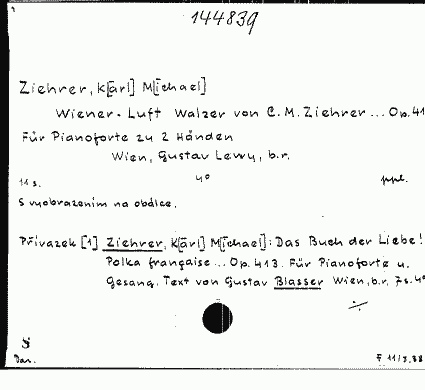 144839
Ziehrer, K[arl] M[ichael]
Wiener-Luft Walzer von C. M. Ziehrer ... Op. 41
Für Pianoforte zu 2 Händen
Wien, Gustav Lewy, b.r.
11 s. 4° ppl.
S vyobrazením na obálce.
Přívazek [1] Ziehrer, K[arl] M[ichael]: Das Buch der Liebe!
Polka française ... Op. 413. Für Pianoforte u.
Gesang. Text von Gustav Blasser Wien, b.r. 7 s. 4°
S
Dar. F 11/